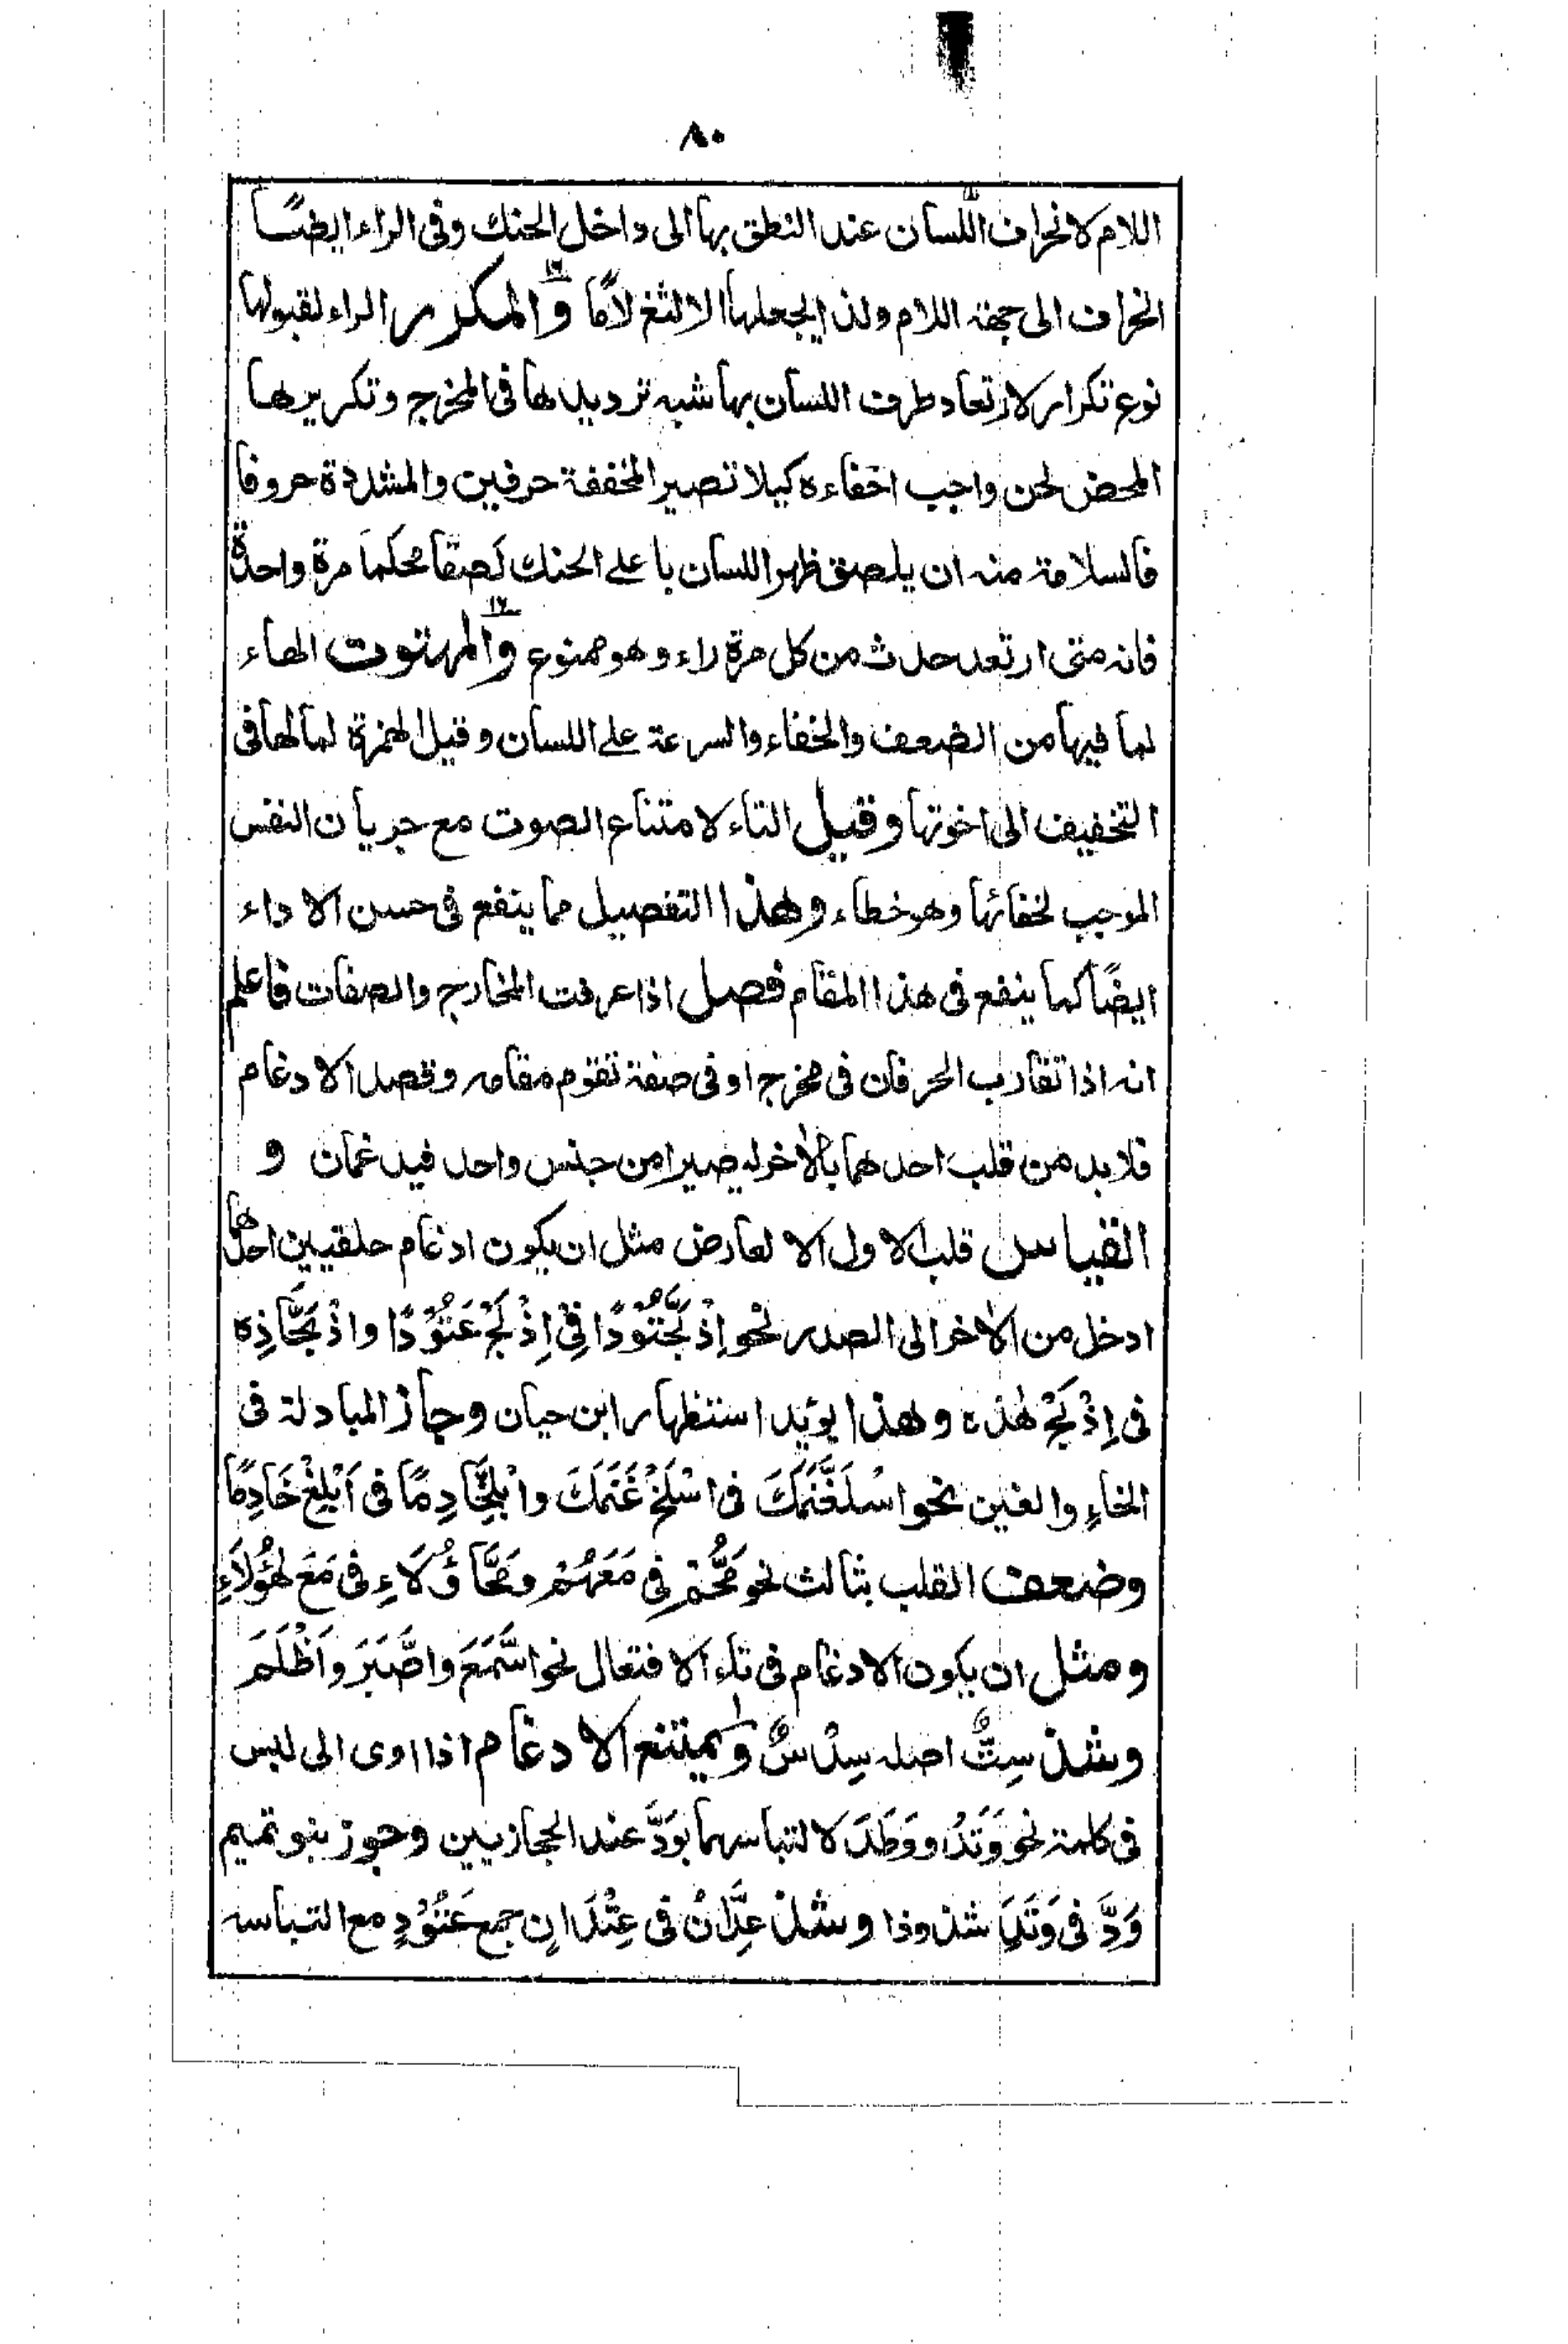 ٨٠
اللام لانحراف اللسان عند النطق بها الى داخل الحنك وفى الراء ايضًا
انحراف الى جهة اللام ولذا يجعلها الالثغ لامًا والمكرر الراء لقبولها
نوع تكرار لارتعاد طرف اللسان بها شبه ترديد لها فى المخرج وتكريرها
المحض لحن واجب اخفاءه كيلا تصير المخففة حرفين والمشددة حروفا
فالسلامة منه ان يلصق ظهر اللسان باعلى الحنك لصقا محكما مرة واحدة
فانه متى ارتعد حدث من كل مرة راء وهو ممنوع والمهتوت الهاء
لما فيها من الضعف والخفاء والسرعة على اللسان وقيل الهمزة لما لها فى
التخفيف الى اخوتها وقيل التاء لامتناع الصوت مع جريان النفس
الموجب لخفائها وهو خطاء وهذا التفصيل مما ينفع فى حسن الاداء
ايضًا كما ينفع فى هذا المقام فصل اذا عرفت المخارج والصفات فاعلم
انه اذا تقارب الحرفان فى مخرج او فى صفة تقوم مقامه وقصد الادغام
فلا بد من قلب احدهما بالاخر ليصيرا من جنس واحد فيدغمان و
القياس قلب الاول الا لعارض مثل ان يكون ادغام حلقيين احدها
ادخل من الاخر الى الصدر نحو اِذْبَحَّتُوْدًا فِىْ اِذْبَحْ عَتُوْدًا واذْبَحَّاذِه
فى اِذْبَحْ هٰذه وهذا يؤيد استظهار ابن حيان وجاز المبادلة فى
الخاءِ والغين نحو اسْلَغَّنَمَكَ فى اسْلَخْ غَنَمَكَ وابْلِخَّادِمًا فى اَبْلِغْ خَادِمًا
وضعف القلب بثالث نحو مَحُّمْ فِى مَعَهُمْ ومَحَّاؤُلَاءِ فى مَعَ هٰؤُلَاءِ
ومثل ان يكون الادغام فى تاء الافتعال نحو اسَّمَعَ واصَّبَرَ واَظْلَمَ
وشذ سِتٌّ اصله سِدْسٌ ويمتنع الادغام اذا اوى الى لبس
فى كلمة نحو وَتَدُ ووَطَدَ لالتباسهما بوَدَّ عند الحجازيين وجوز بنو تميم
وَدَّ فى وَتَدَ شذوذا وشذ عِدَّانٌ فى عِتْدَانٍ جمع عَتُوْدٍ مع التباسه